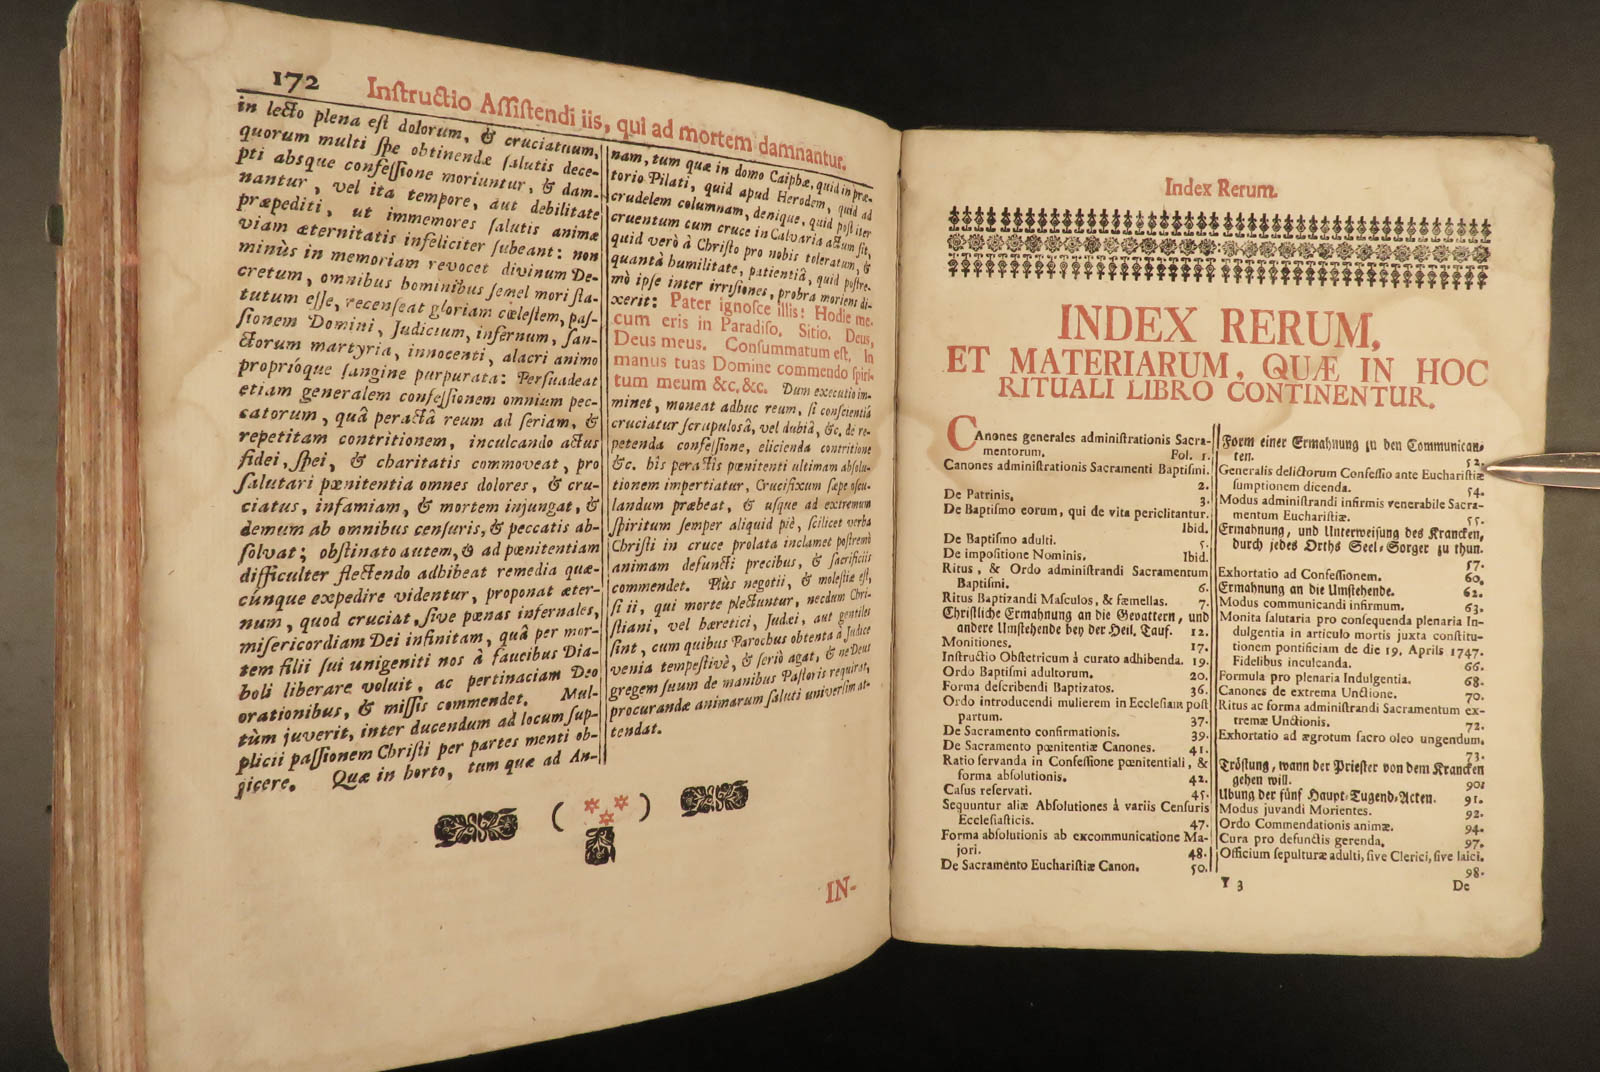 172 Inſtructio Aſſiſtendi iis, qui ad mortem damnantur.
in lecto plena eſt dolorum, & cruciatuum,
quorum multi ſpe obtinendæ ſalutis dece-
pti absque confeſſione moriuntur, & dam-
nantur, vel ita tempore, aut debilitate
præpediti, ut immemores ſalutis animæ
viam æternitatis infeliciter ſubeant: non
minùs in memoriam revocet divinum De-
cretum, omnibus hominibus ſemel mori ſta-
tutum eſſe, recenſeat gloriam cœleſtem, paſ-
ſionem Domini, Judicium, infernum, ſan-
ctorum martyria, innocenti, alacri animo
proprióque ſangine purpurata: Perſuadeat
etiam generalem confeſſionem omnium pec-
catorum, quâ peractâ reum ad ſeriam, &
repetitam contritionem, inculcando actus
fidei, ſpei, & charitatis commoveat, pro
ſalutari pœnitentia omnes dolores, & cru-
ciatus, infamiam, & mortem injungat, &
demum ab omnibus cenſuris, & peccatis ab-
ſolvat; obſtinato autem, & ad pœnitentiam
difficulter flectendo adhibeat remedia quæ-
cúnque expedire videntur, proponat æter-
num, quod cruciat, ſive pœnas infernales,
miſericordiam Dei infinitam, quâ per mor-
tem filii ſui unigeniti nos à faucibus Dia-
boli liberare voluit, ac pertinaciam Deo
orationibus, & miſſis commendet. Mul-
tùm juverit, inter ducendum ad locum ſup-
plicii paſſionem Chriſti per partes menti ob-
jicere. Quæ in horto, tum quæ ad An-
nam, tum quæ in domo Caiphæ, quid in præ-
torio Pilati, quid apud Herodem, quid ad
crudelem columnam, denique, quid poſt iter
cruentum cum cruce in Calvaria actum ſit,
quid verò à Chriſto pro nobis toleratum, &
quantâ humilitate, patientiâ, quid poſtre-
mò ipſe inter irriſiones, probra moriens di-
xerit: Pater ignoſce illis: Hodie me-
cum eris in Paradiſo. Sitio. Deus,
Deus meus. Conſummatum eſt. In
manus tuas Domine commendo ſpiri-
tum meum &c. &c. Dum executio im-
minet, moneat adhuc reum, ſi conſcientiâ
cruciatur ſcrupulosâ, vel dubiâ, &c. de re-
petenda confeſſione, elicienda contritione
&c. his peractis pœnitenti ultimam abſolu-
tionem impertiatur, Crucifixum ſæpe oſcu-
landum præbeat, & uſque ad extremum
ſpiritum ſemper aliquid piè, ſcilicet verba
Chriſti in cruce prolata inclamet poſtremò
animam defuncti precibus, & ſacrificiis
commendet. Plùs negotii, & moleſtiæ eſt,
ſi ii, qui morte plectuntur, necdum Chri-
ſtiani, vel hæretici, Judæi, aut gentiles
ſint, cum quibus Parochus obtenta à Judice
venia tempeſtivè, & ſeriò agat, & ne Deus
gregem ſuum de manibus Paſtoris requirat,
procurandæ animarum ſaluti univerſim at-
tendat.
IN-
Index Rerum.
INDEX RERUM,
ET MATERIARUM, QUÆ IN HOC
RITUALI LIBRO CONTINENTUR.
CAnones generales adminiſtrationis Sacra-
mentorum. Fol. 1.
Canones adminiſtrationis Sacramenti Baptiſmi.
2.
De Patrinis. 3.
De Baptiſmo eorum, qui de vita periclitantur.
Ibid.
De Baptiſmo adulti. 5.
De impoſitione Nominis. Ibid.
Ritus, & Ordo adminiſtrandi Sacramentum
Baptiſmi. 6.
Ritus Baptizandi Maſculos, & fæmellas. 7.
Chriſtliche Ermahnung an die Gevattern, und
andere Umſtehende bey der Heil. Tauf. 12.
Monitiones. 17.
Inſtructio Obſtetricum â curato adhibenda. 19.
Ordo Baptiſmi adultorum. 20.
Forma deſcribendi Baptizatos. 36.
Ordo introducendi mulierem in Eccleſiam poſt
partum. 37.
De Sacramento confirmationis. 39.
De Sacramento pœnitentiæ Canones. 41.
Ratio ſervanda in Confeſſione pœnitentiali, &
forma abſolutionis. 42.
Caſus reſervati. 45.
Sequuntur aliæ Abſolutiones â variis Cenſuris
Eccleſiaſticis. 47.
Forma abſolutionis ab excommunicatione Ma-
jori. 48.
De Sacramento Euchariſtiæ Canon. 50.
Form einer Ermahnung zu den Communican-
ten. 52.
Generalis delictorum Confeſſio ante Euchariſtiæ
ſumptionem dicenda. 54.
Modus adminiſtrandi infirmis venerabile Sacra-
mentum Euchariſtiæ. 55.
Ermahnung, und Unterweiſung des Krancken,
durch jedes Orths Seel-Sorger zu thun.
57.
Exhortatio ad Confeſſionem. 60.
Ermahnung an die Umſtehende. 62.
Modus communicandi infirmum. 63.
Monita ſalutaria pro conſequenda plenaria In-
dulgentia in articulo mortis juxta conſtitu-
tionem pontificiam de die 19. Aprils 1747.
Fidelibus inculcanda. 66.
Formula pro plenaria Indulgentia. 68.
Canones de extrema Unctione. 70.
Ritus ac forma adminiſtrandi Sacramentum ex-
tremæ Unctionis. 72.
Exhortatio ad ægrotum ſacro oleo ungendum.
73.
Tröſtung, wann der Prieſter von dem Krancken
gehen will. 90.
Ubung der fünf Haupt-Tugend-Acten. 91.
Modus juvandi Morientes. 92.
Ordo Commendationis animæ. 94.
Cura pro defunctis gerenda. 97.
Officium ſepulturæ adulti, ſive Clerici, ſive laici.
98.
Y 3 De